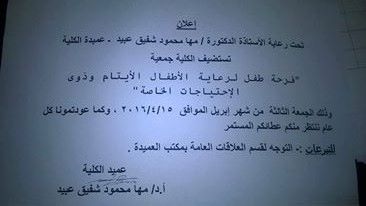 اعلان
تحت رعاية الأستاذة الدكتورة / مها محمود شفيق عبيد - عميدة الكلية
تستضيف الكلية جمعية
" فرحة طفل لرعاية الأطفال الأيتام وذوى
الإحتياجات الخاصة "
وذلك الجمعة الثالثة من شهر إبريل الموافق ٢٠١٦/٤/١٥ ، وكما عودتمونا كل
عام ننتظر منكم عطائكم المستمر
للتبرعات :- التوجه لقسم العلاقات العامة بمكتب العميدة .
عميد الكلية
أ.د/ مها محمود شفيق عبيد